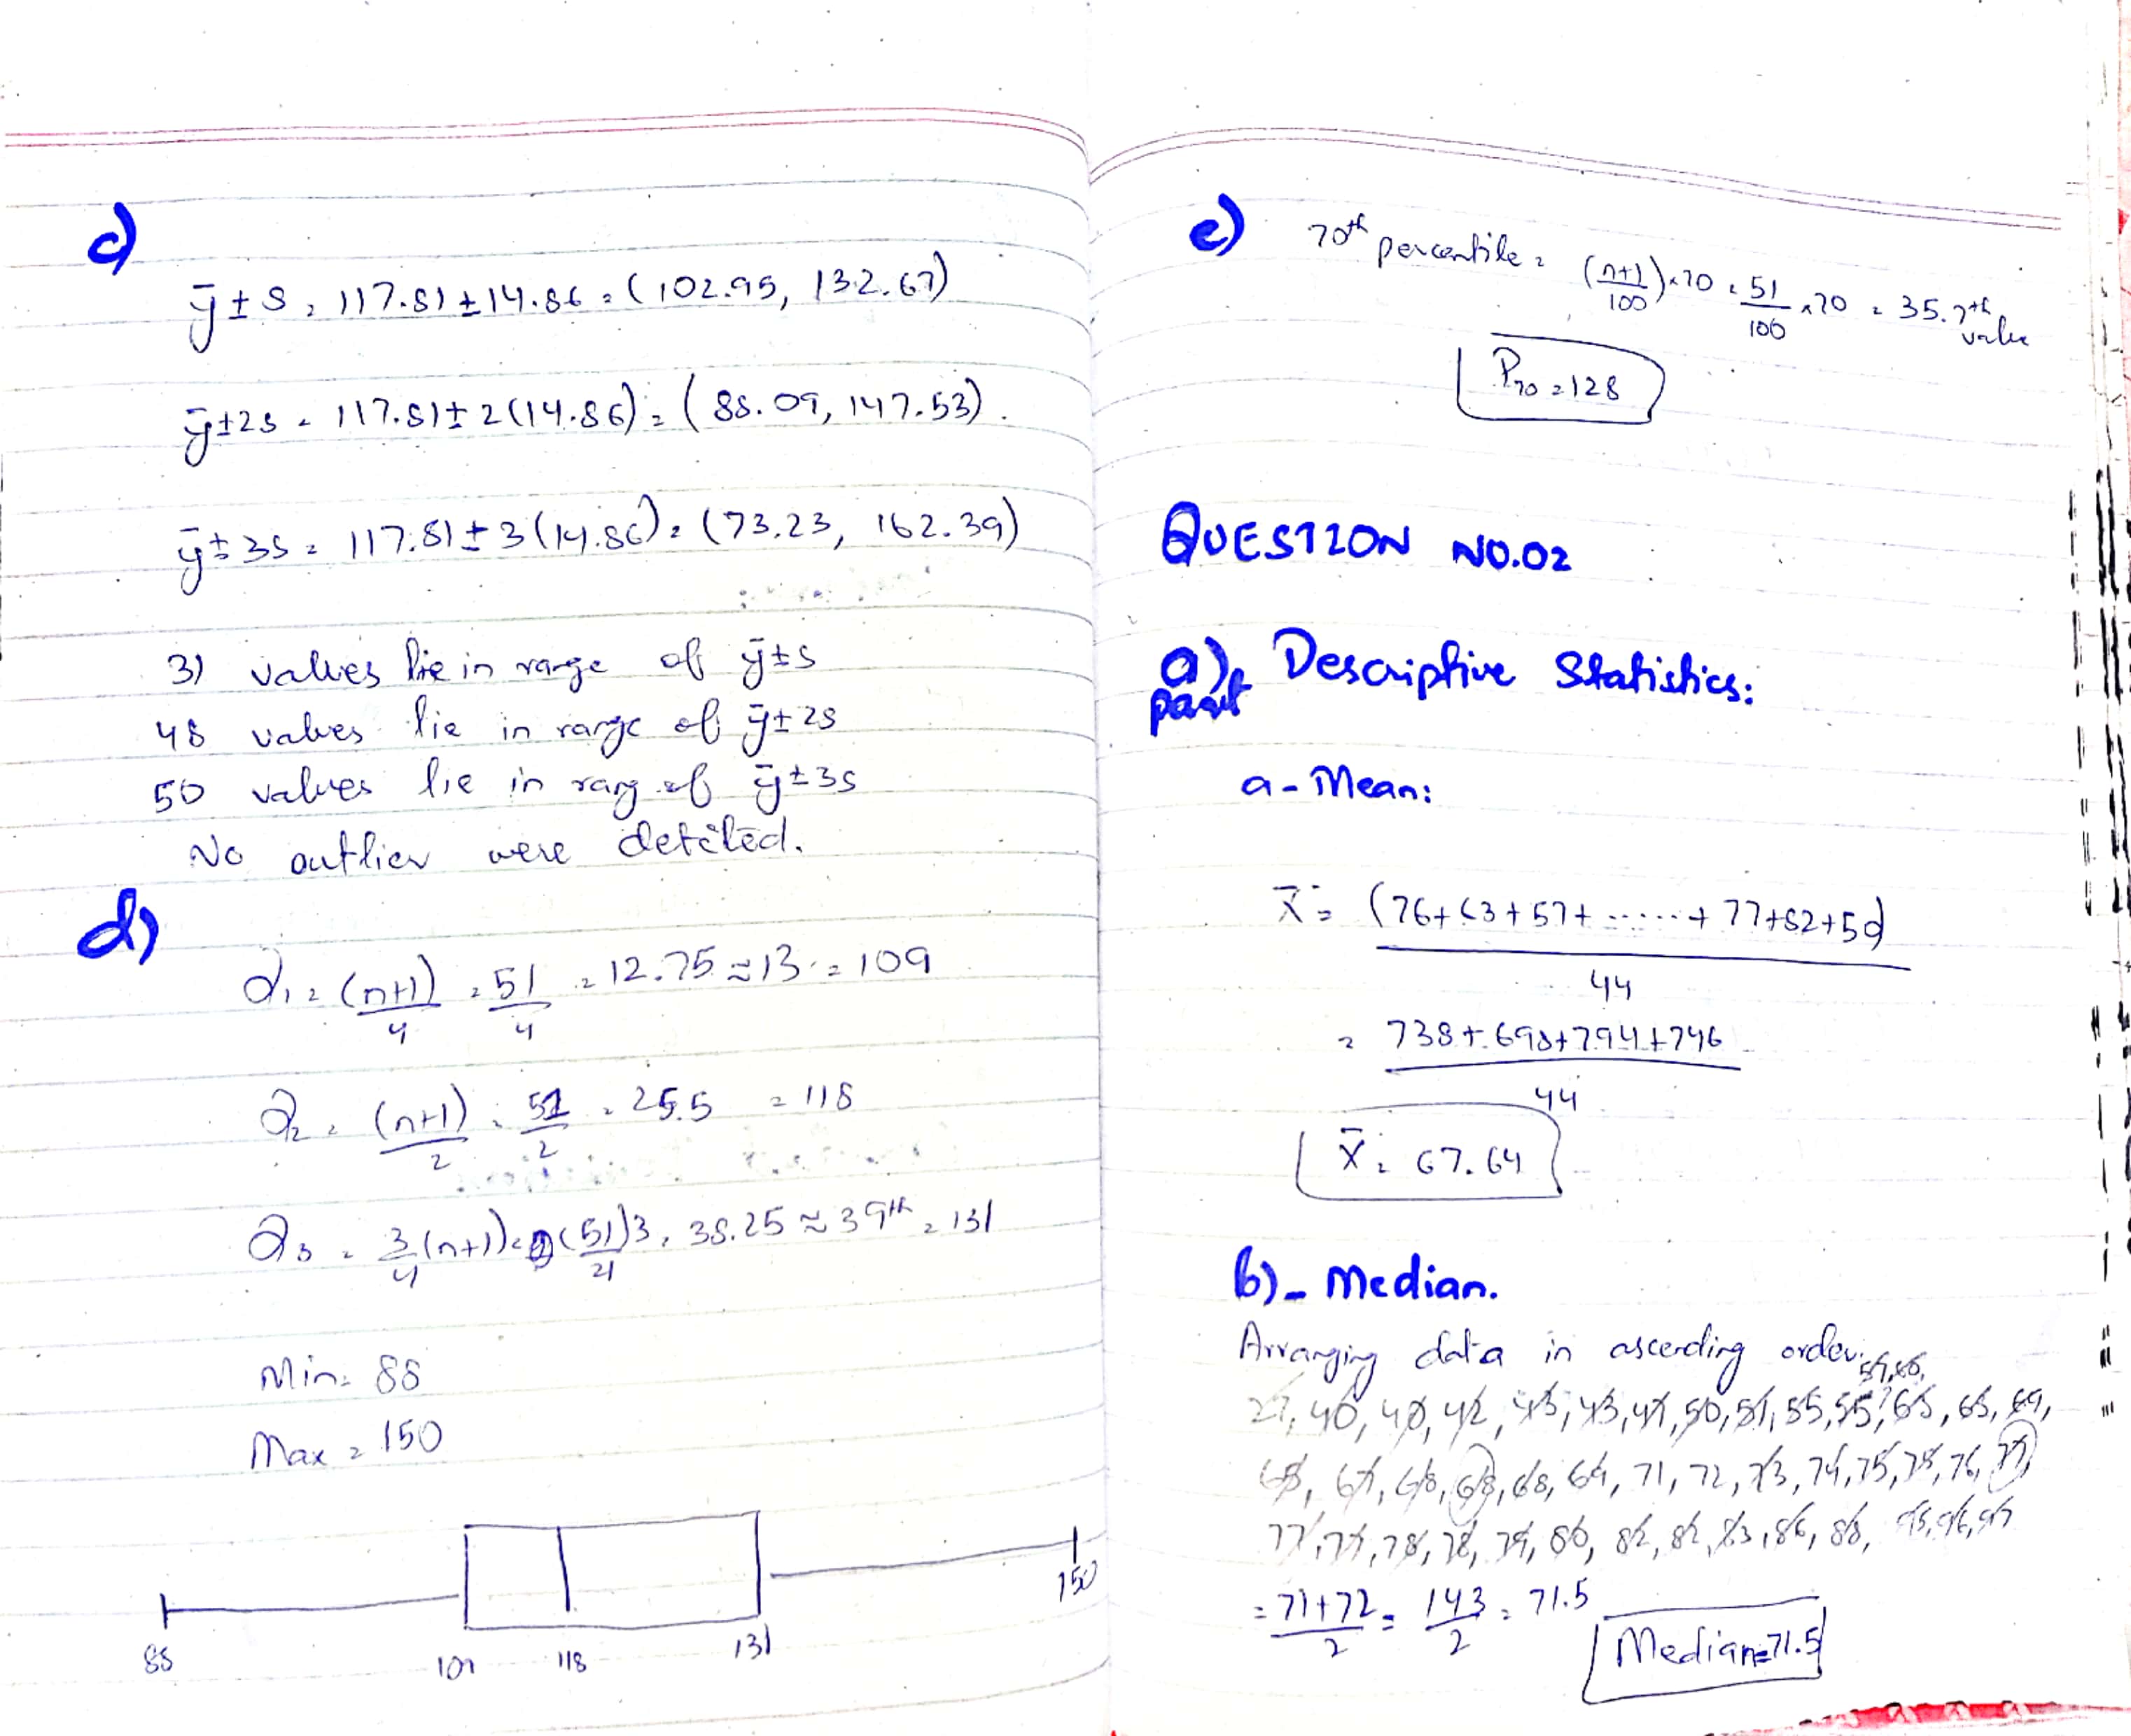 c)
ȳ ± S = 117.81 ± 14.86 = (102.95, 132.67)
ȳ±2s = 117.81 ± 2(14.86) = (88.09, 147.53).
ȳ ± 3S = 117.81 ± 3(14.86) = (73.23, 162.39)
31 values lie in range of ȳ±s
48 values lie in range of ȳ±2s
50 values lie in rang of ȳ±3s
No outlier were
d)
Q₁ = (n+1)/4 = 51/4 = 12.75 ≈ 13 = 109
Q₂ = (n+1)/2 = 51/2 = 25.5 = 118
Q₃ = 3/4(n+1) = (51)3/4 = 38.25 ≈ 39th = 131
Min = 88
Max = 150
88 109 118 131 150
e) 70th percentile = (n+1/100)×70 = 51/100 ×70 = 35.7th value
P₇₀ = 128
QUESTION NO.02
a) part Descriptive Statistics:
a - Mean:
x̄ = (76+63+57+......+77+82+50)/44
= 738+698+794+746/44
x̄ = 67.64
b) - Median.
Arranging data in ascending order:
27, 40, 40, 42, 43, 43, 47, 50, 51, 55, 55, 65, 65,
68, 68, 71, 72, 73, 74, 75, 75, 76, 77,
77, 77, 78, 78, 79, 80, 82, 82, 83, 86, 88, 96, 97
= 71+72/2 = 143/2 = 71.5
Median=71.5